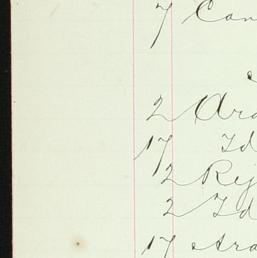 7 Can
2 Ara
17 Id
12 Rej
2 Id
17 Ara